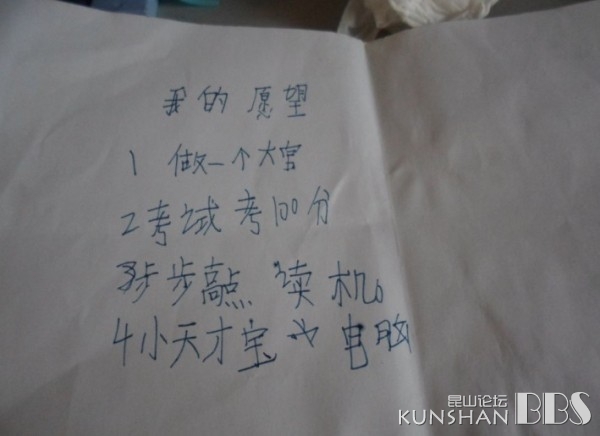 我的愿望
1 做一个大官
2 考试考100分
3 步步高点读机。
4 小天才宝贝电脑
昆山论坛
KUNSHAN BBS